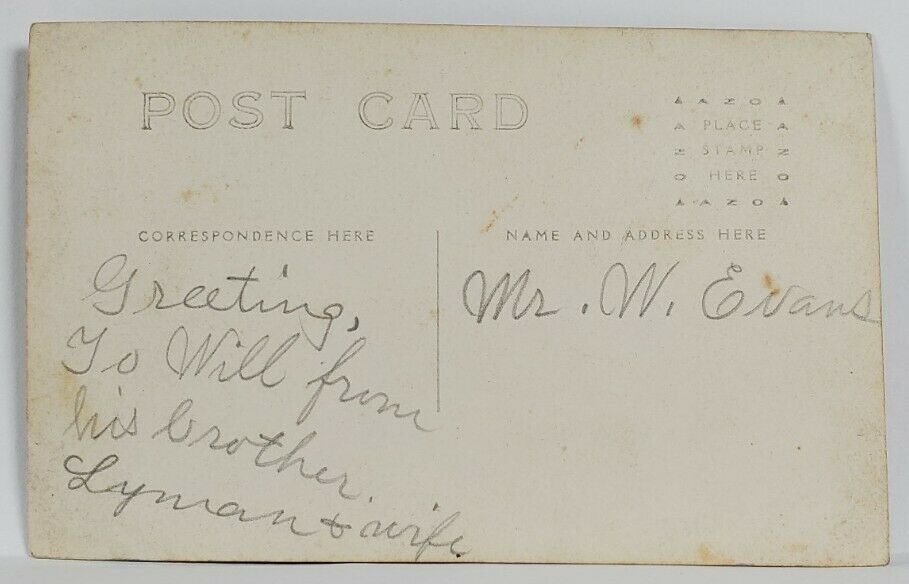 POST CARD
AZO
A PLACE A
Z STAMP Z
O HERE O
AZO
CORRESPONDENCE HERE
NAME AND ADDRESS HERE
Greeting,
To Will from
his brother.
Lyman & wife
Mr. W. Evans